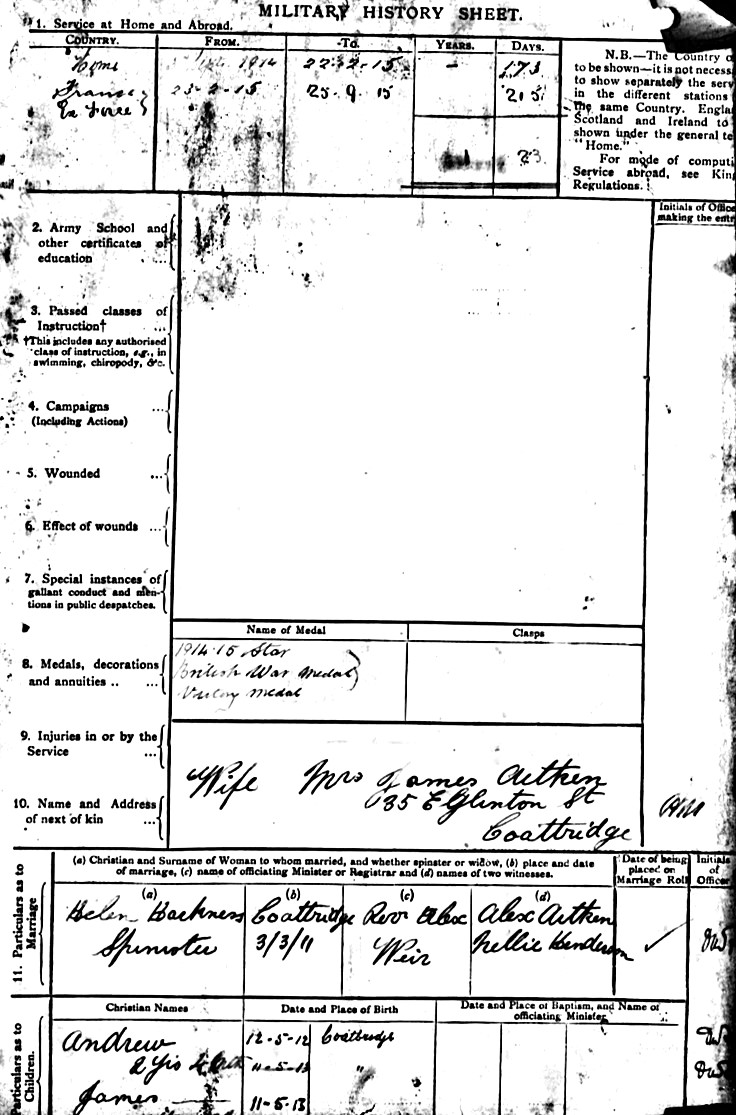 MILITARY HISTORY SHEET.
1. Service at Home and Abroad.
COUNTRY. FROM. To. YEARS. DAYS.
Home 1914 22-2-15 - 173
France 23-2-15 25-9-15 215
Ex Force
1 23
N.B.—The Country
to be shown—it is not necess
to show separately the serv
in the different stations
the same Country. Engla
Scotland and Ireland to
shown under the general te
"Home."
For mode of computi
Service abroad, see Kin
Regulations.
Initials of Office
making the entr
2. Army School and
other certificates of
education
3. Passed classes of
Instruction† ...
†This includes any authorised
class of instruction, e.g., in
swimming, chiropody, &c.
4. Campaigns ...
(Including Actions)
5. Wounded ...
6. Effect of wounds ...
7. Special instances of
gallant conduct and men-
tions in public despatches.
Name of Medal Clasps
8. Medals, decorations
and annuities .. ...
1914-15 Star
British War Medal
Victory Medal
9. Injuries in or by the
Service ...
10. Name and Address
of next of kin ...
Wife Mrs James Aitken
135 Eglinton St
Coatbridge
11. Particulars as to
Marriage
(a) Christian and Surname of Woman to whom married, and whether spinster or widow, (b) place and date
of marriage, (c) name of officiating Minister or Registrar and (d) names of two witnesses.
Date of being
placed on
Marriage Roll
Initials
of
Officer
(a) (b) (c) (d)
Helen Harkness Coatbridge Rev Alex Alex Aitken
Spinster 3/3/11 Weir Nellie Henderson
Particulars as to
Children.
Christian Names Date and Place of Birth Date and Place of Baptism, and Name of
officiating Minister.
Andrew 12-5-12 Coatbridge
11-5-13 "
James 11-5-13